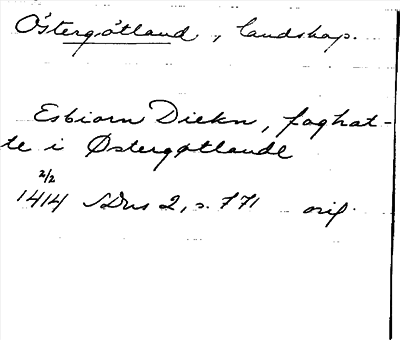 Östergötland, landskap.
Esbiorn Diekn, foghat-
te i Østergøtlande
2/2
1414 SDns 2, s. 771 orig.